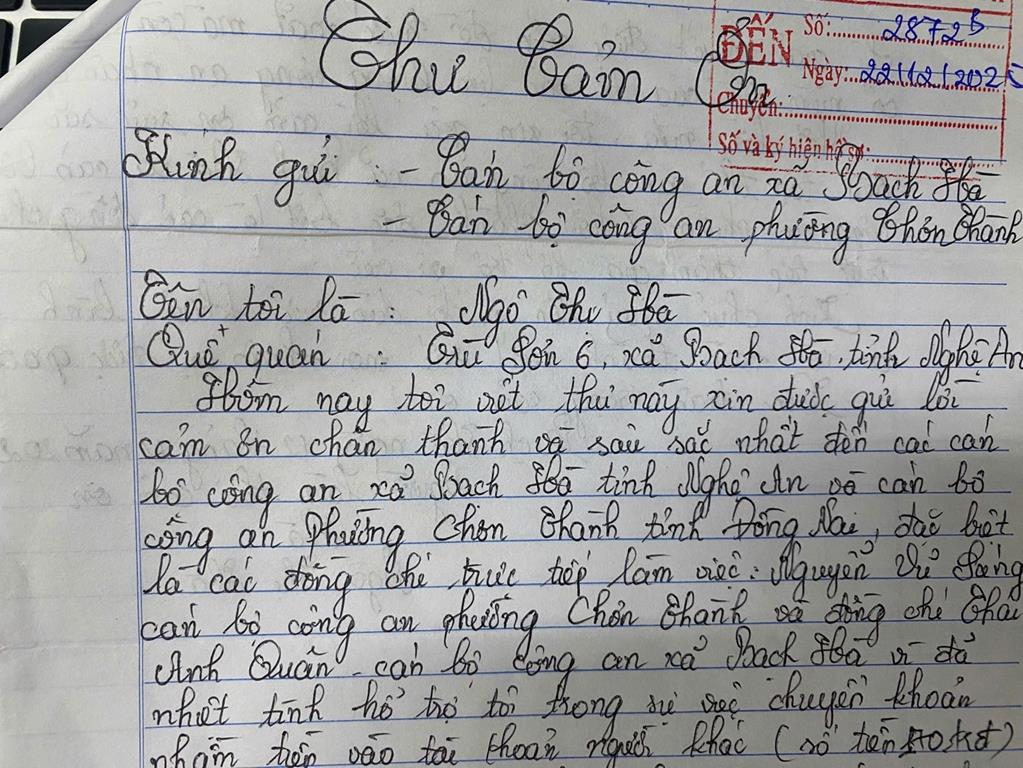 Thư Cảm Ơn
ĐẾN
Số: 2872
Ngày: 22/12/2025
Chuyển:
Số và ký hiện hồ sơ:
Kính gửi : - Cán bộ công an xã Bạch Hà
- Cán bộ công an phường Chơn Thành
Tên tôi là : Ngô Thị Hà
Quê quán : Trù Sơn 6, xã Bạch Hà, tỉnh Nghệ An
Hôm nay tôi viết thư này xin được gửi lời
cảm ơn chân thành và sâu sắc nhất đến các cán
bộ công an xã Bạch Hà tỉnh Nghệ An và cán bộ
công an Phường Chơn Thành tỉnh Đồng Nai, đặc biệt
là các đồng chí trực tiếp làm việc: Nguyễn Vũ
cán bộ công an phường Chơn Thành và đồng chí Thái
Anh Quân - cán bộ công an xã Bạch Hà vì đã
nhiệt tình hỗ trợ tôi trong sự việc chuyển khoản
nhầm tiền vào tài khoản người khác (số tiền